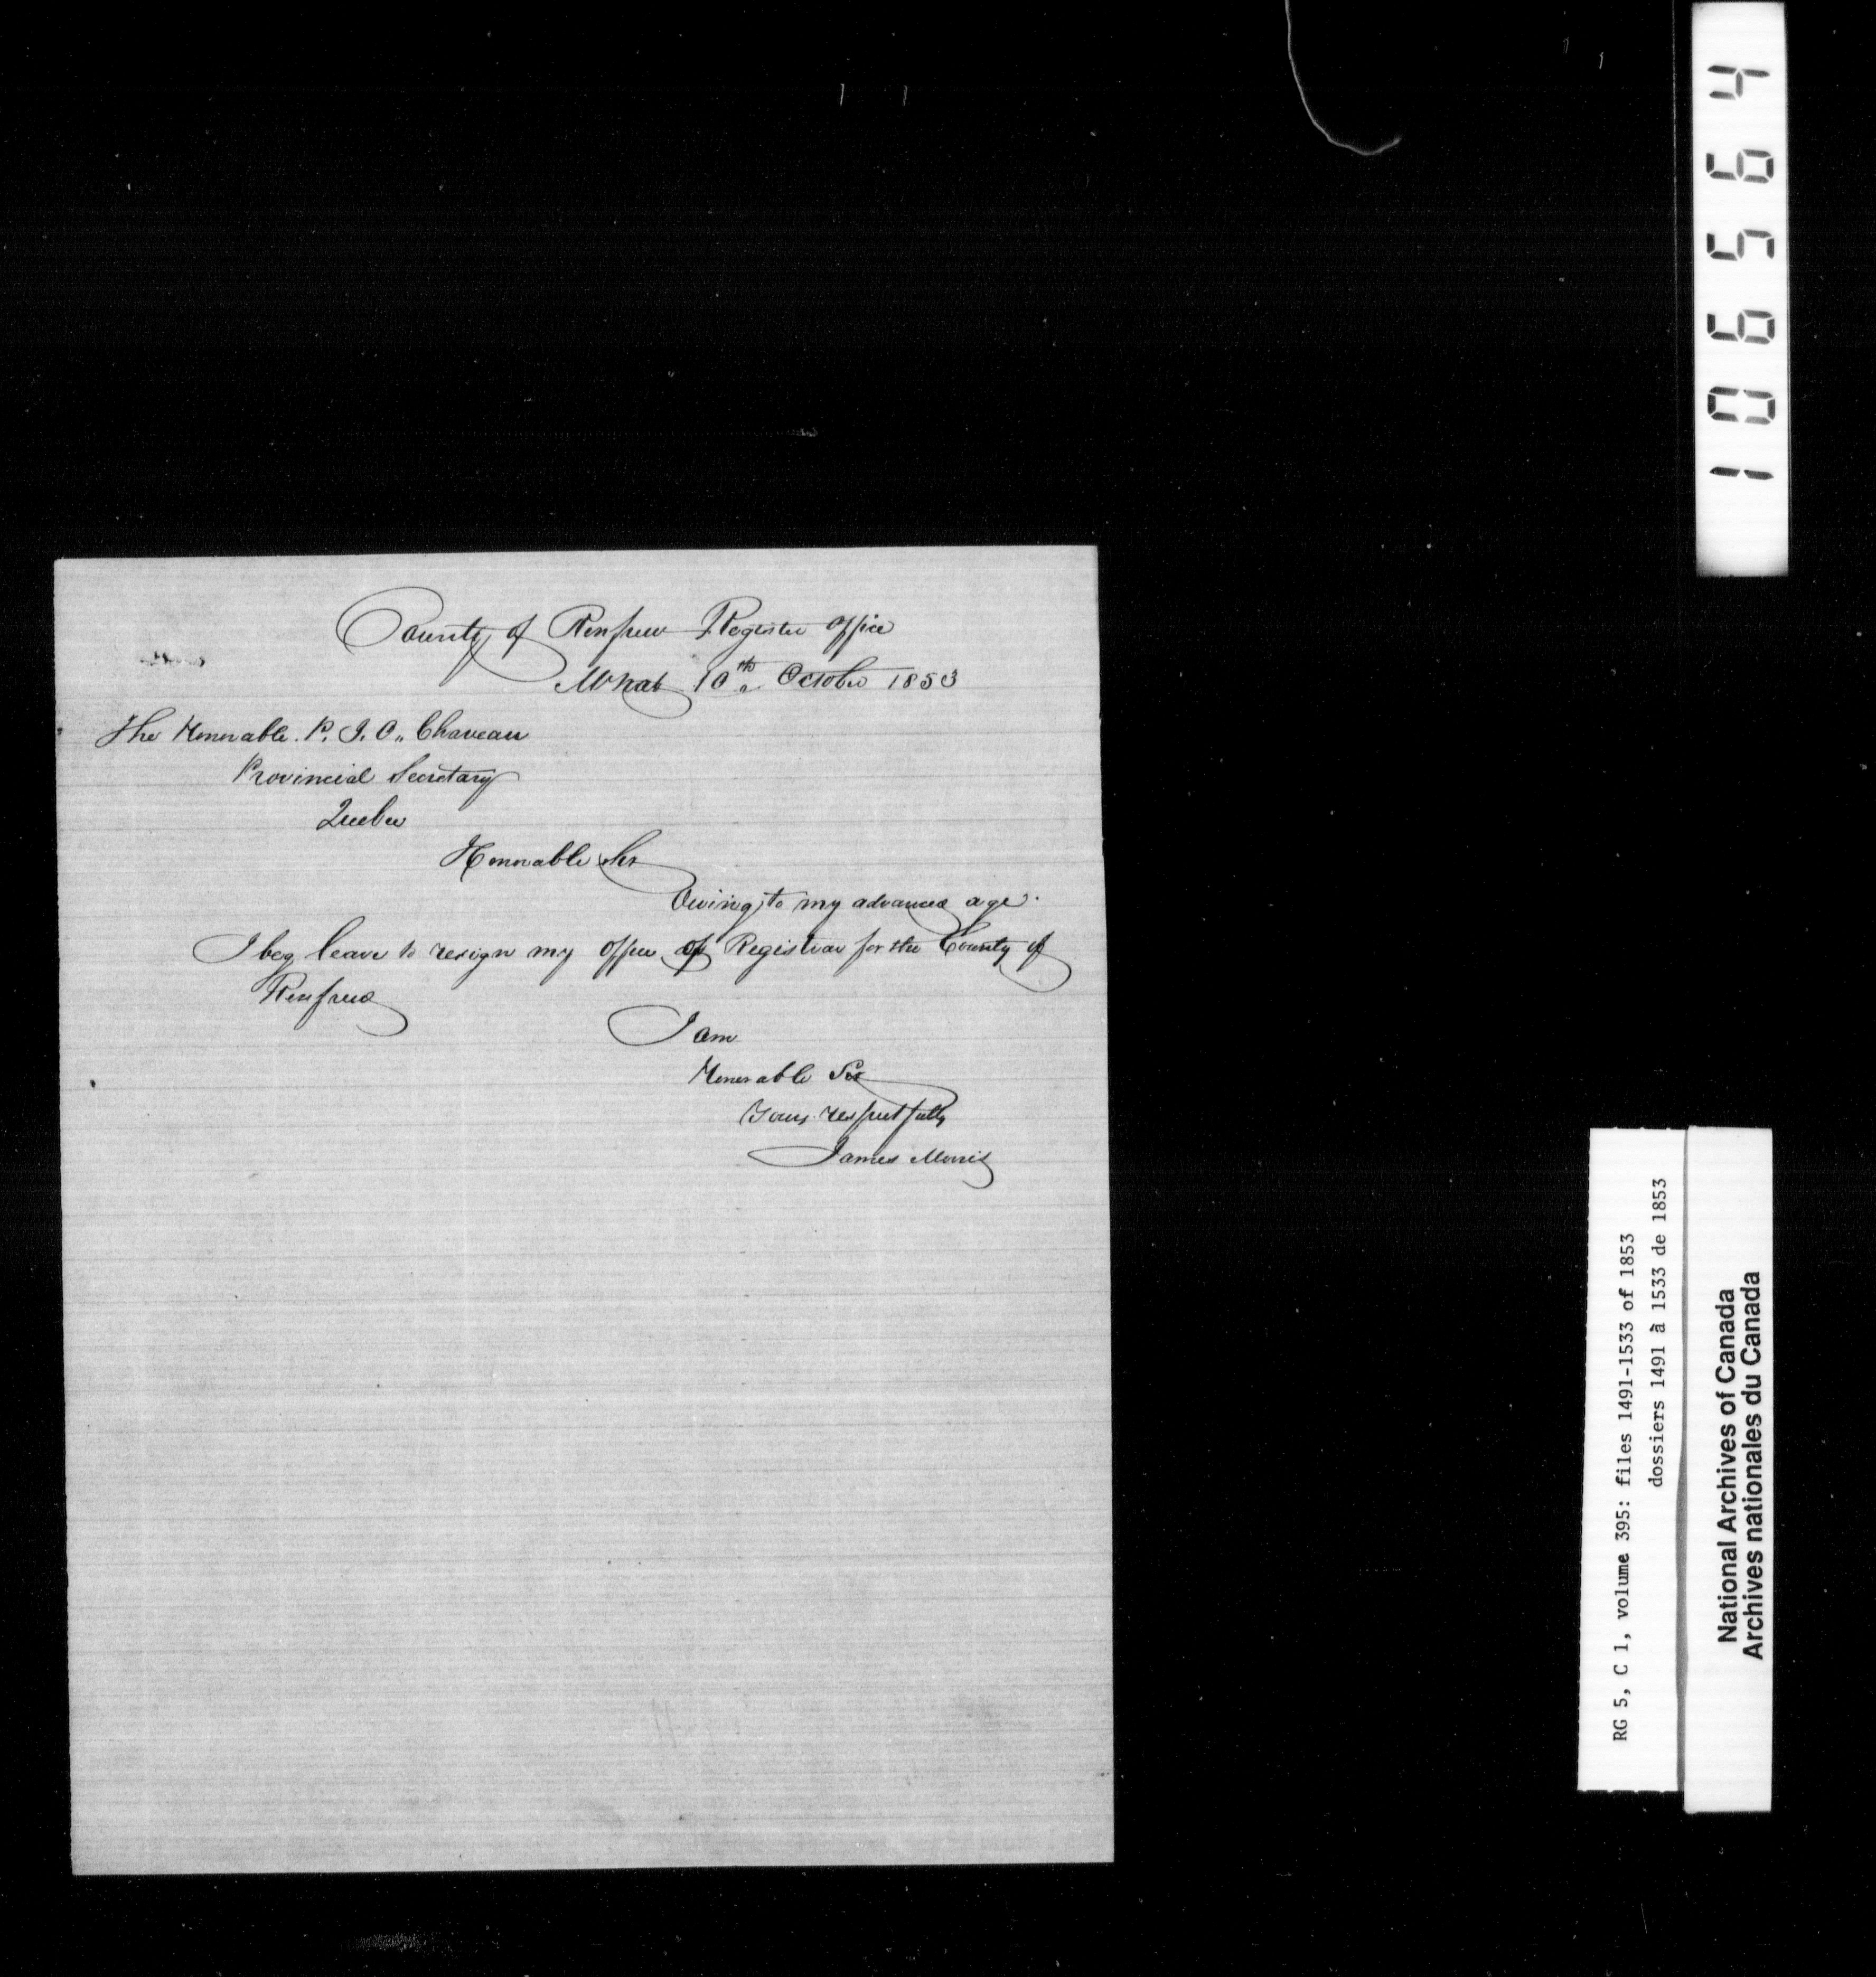 County of Renfrew Register Office
McNab 10th October 1853
The Honorable P. J. O. Chaveau
Provincial Secretary
Quebec
Honorable Sir
Owing to my advanced age
I beg leave to resign my office of Registrar for the County of
Renfrew
I am
Honorable Sir
Yours respectfully
James Morris
106564
RG 5, C 1, volume 395: files 1491-1533 of 1853
dossiers 1491 à 1533 de 1853
National Archives of Canada
Archives nationales du Canada